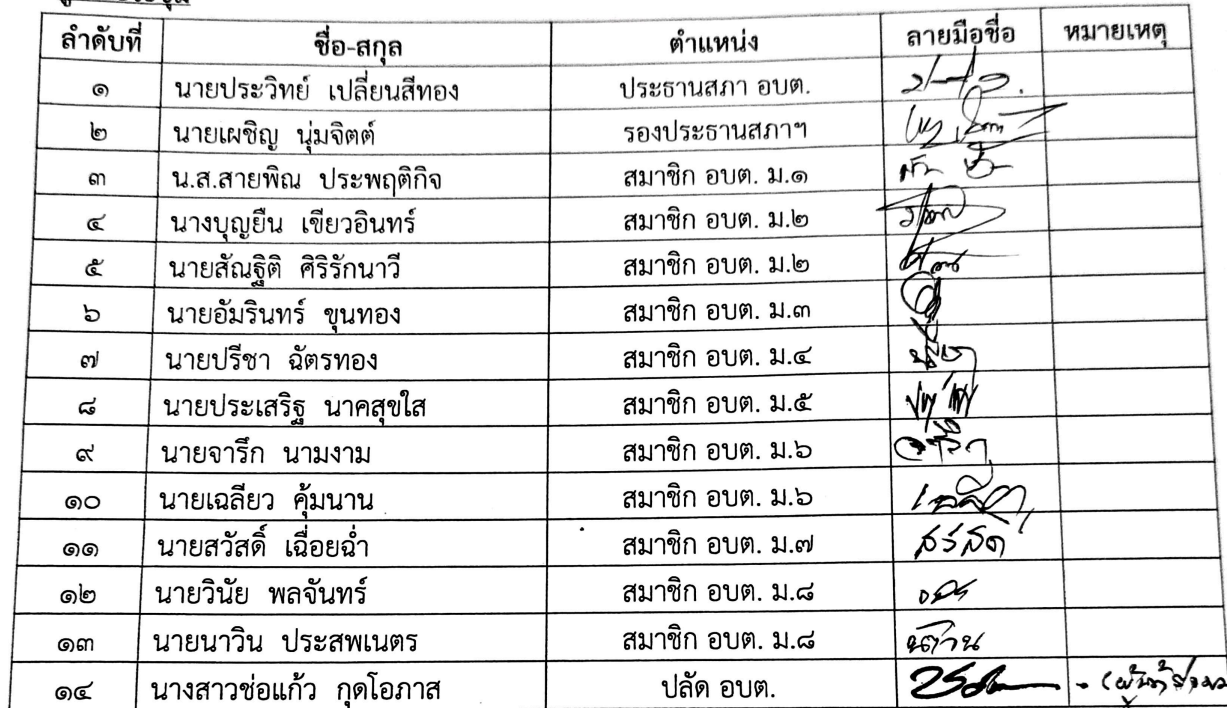 ลำดับที่ ชื่อ-สกุล ตำแหน่ง ลายมือชื่อ หมายเหตุ
๑ นายประวิทย์ เปลี่ยนสีทอง ประธานสภา อบต.
๒ นายเผชิญ นุ่มจิตต์ รองประธานสภาฯ
๓ น.ส.สายพิณ ประพฤติกิจ สมาชิก อบต. ม.๑
๔ นางบุญยืน เขียวอินทร์ สมาชิก อบต. ม.๒
๕ นายสัณฐิติ ศิริรักนาวี สมาชิก อบต. ม.๒
๖ นายอัมรินทร์ ขุนทอง สมาชิก อบต. ม.๓
๗ นายปรีชา ฉัตรทอง สมาชิก อบต. ม.๔
๘ นายประเสริฐ นาคสุขใส สมาชิก อบต. ม.๕
๙ นายจารึก นามงาม สมาชิก อบต. ม.๖
๑๐ นายเฉลียว คุ้มนาน สมาชิก อบต. ม.๖
๑๑ นายสวัสดิ์ เฉื่อยฉ่ำ สมาชิก อบต. ม.๗
๑๒ นายวินัย พลจันทร์ สมาชิก อบต. ม.๘
๑๓ นายนาวิน ประสพเนตร สมาชิก อบต. ม.๘
๑๔ นางสาวช่อแก้ว กุดโอภาส ปลัด อบต.